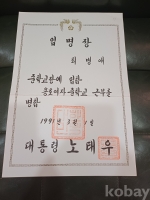 임명장
최병애
중학교장에 임함
중학교 근무를
명함
1991년 3월 1일
대통령 노태우
kobay